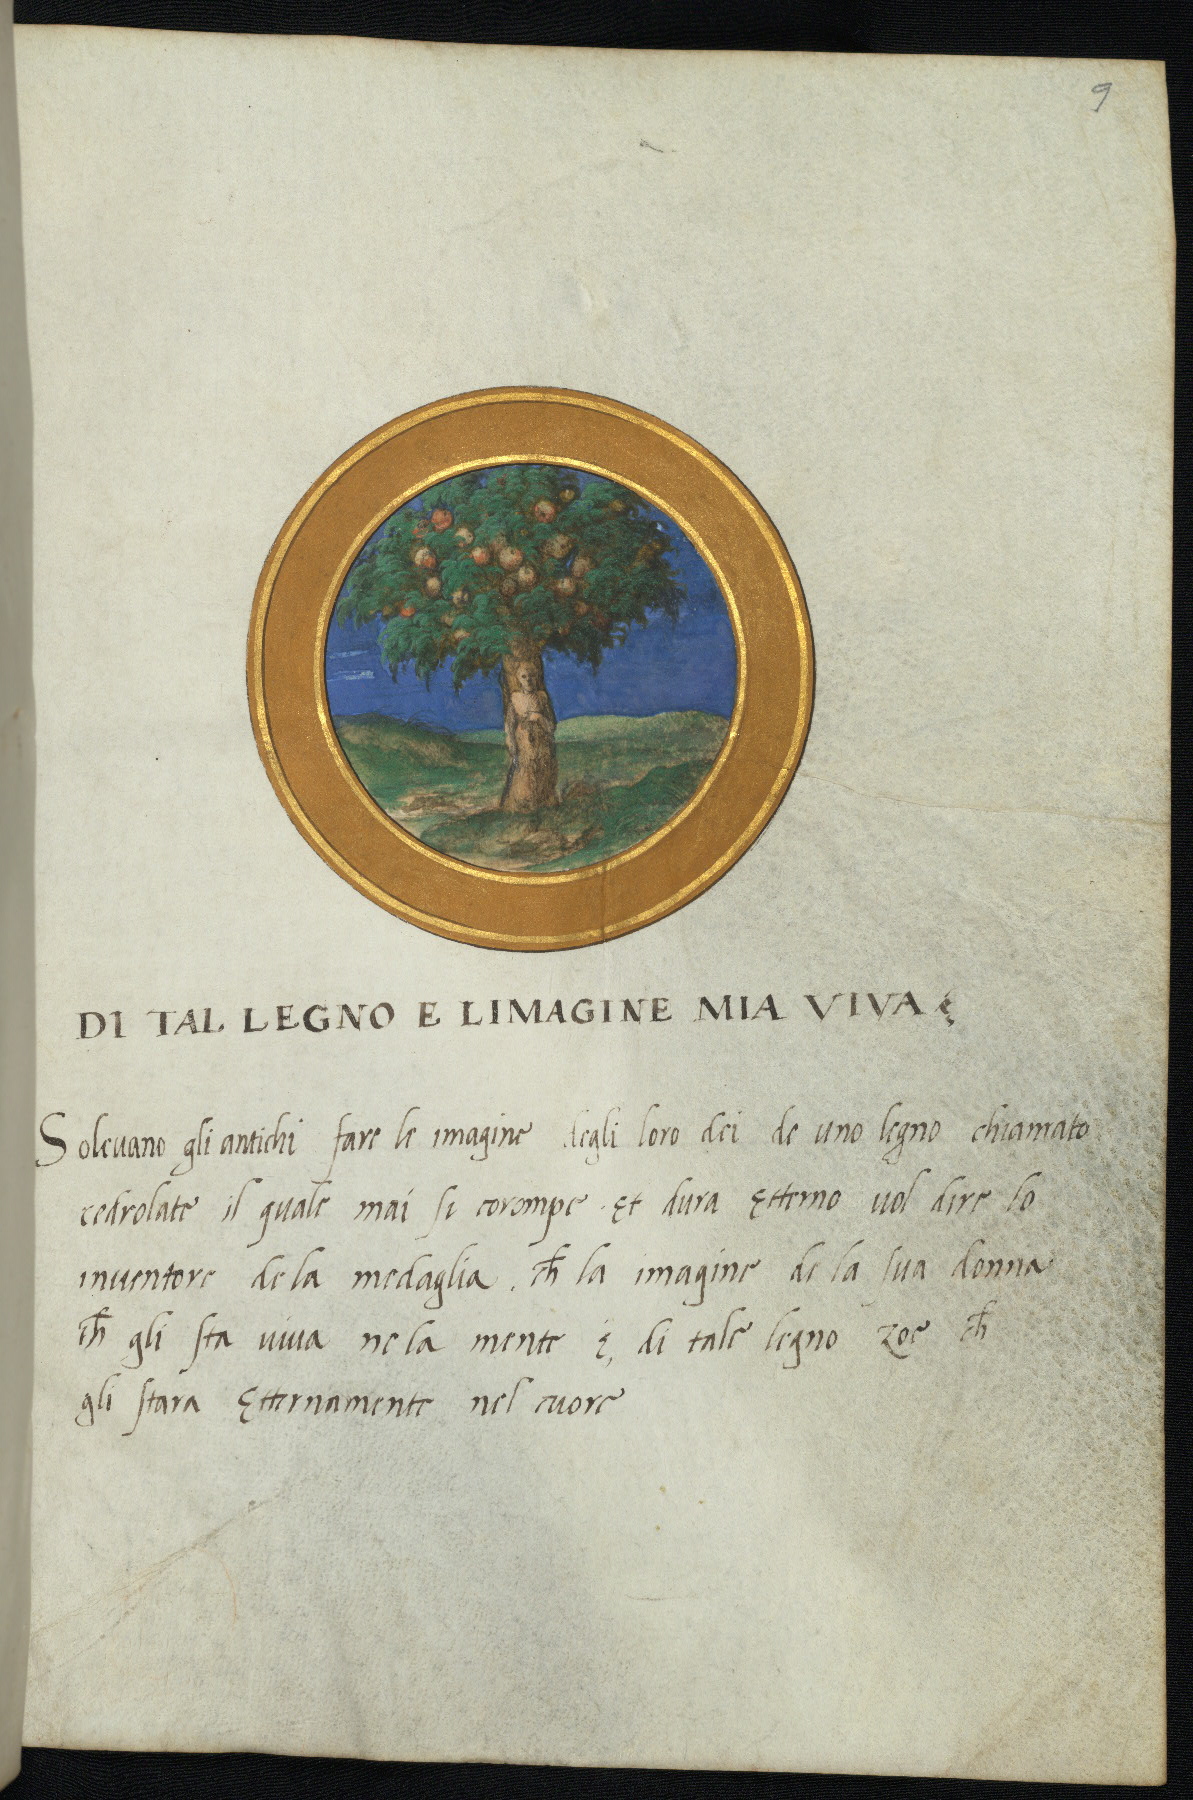 9
DI TAL LEGNO E LIMAGINE MIA VIVA ę
Soleuano gli antichi fare le imagine degli loro dei de uno legno chiamato
cedrolate il quale mai si corompe et dura ętterno uol dire lo
inuentore de la medaglia . ch̄ la imagine de la sua donna
ch̄ gli sta uiua ne la mente ę di tale legno zoe ch̄
gli stara ętternamente nel cuore